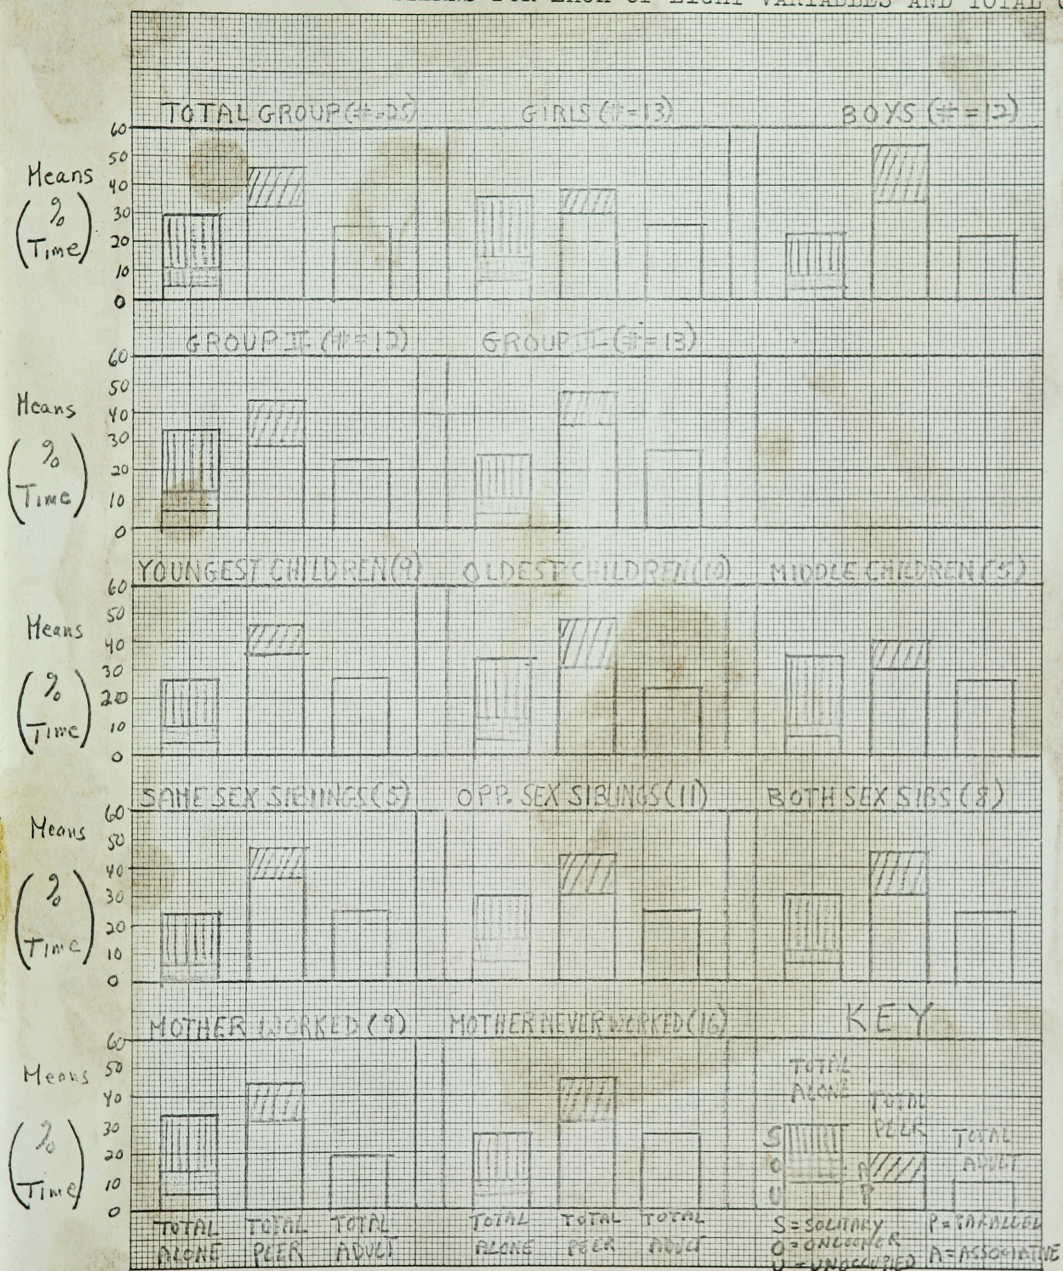 FOR EACH OF EIGHT VARIABLES AND TOTAL
TOTAL GROUP (#=25) GIRLS (#=13) BOYS (#=12)
Means
(%
Time)
60
50
40
30
20
10
0
GROUP (#=12) GROUP (#=13)
Means
(%
Time)
60
50
40
30
20
10
0
YOUNGEST CHILDREN (9) OLDEST CHILDREN (10) MIDDLE CHILDREN (5)
Means
(%
Time)
60
50
40
30
20
10
0
SAME SEX SIBLINGS (5) OPP. SEX SIBLINGS (11) BOTH SEX SIBS (8)
Means
(%
Time)
60
50
40
30
20
10
0
MOTHER WORKED (9) MOTHER NEVER WORKED (16) KEY
Means
(%
Time)
60
50
40
30
20
10
0
TOTAL ALONE
TOTAL PEER
TOTAL ADULT
S
O
U
A
P
TOTAL TOTAL TOTAL TOTAL TOTAL TOTAL
ALONE PEER ADULT ALONE PEER ADULT
S = SOLITARY P = PARALLEL
O = ONLOOKER
U = UNOCCUPIED A = ASSOCIATIVE